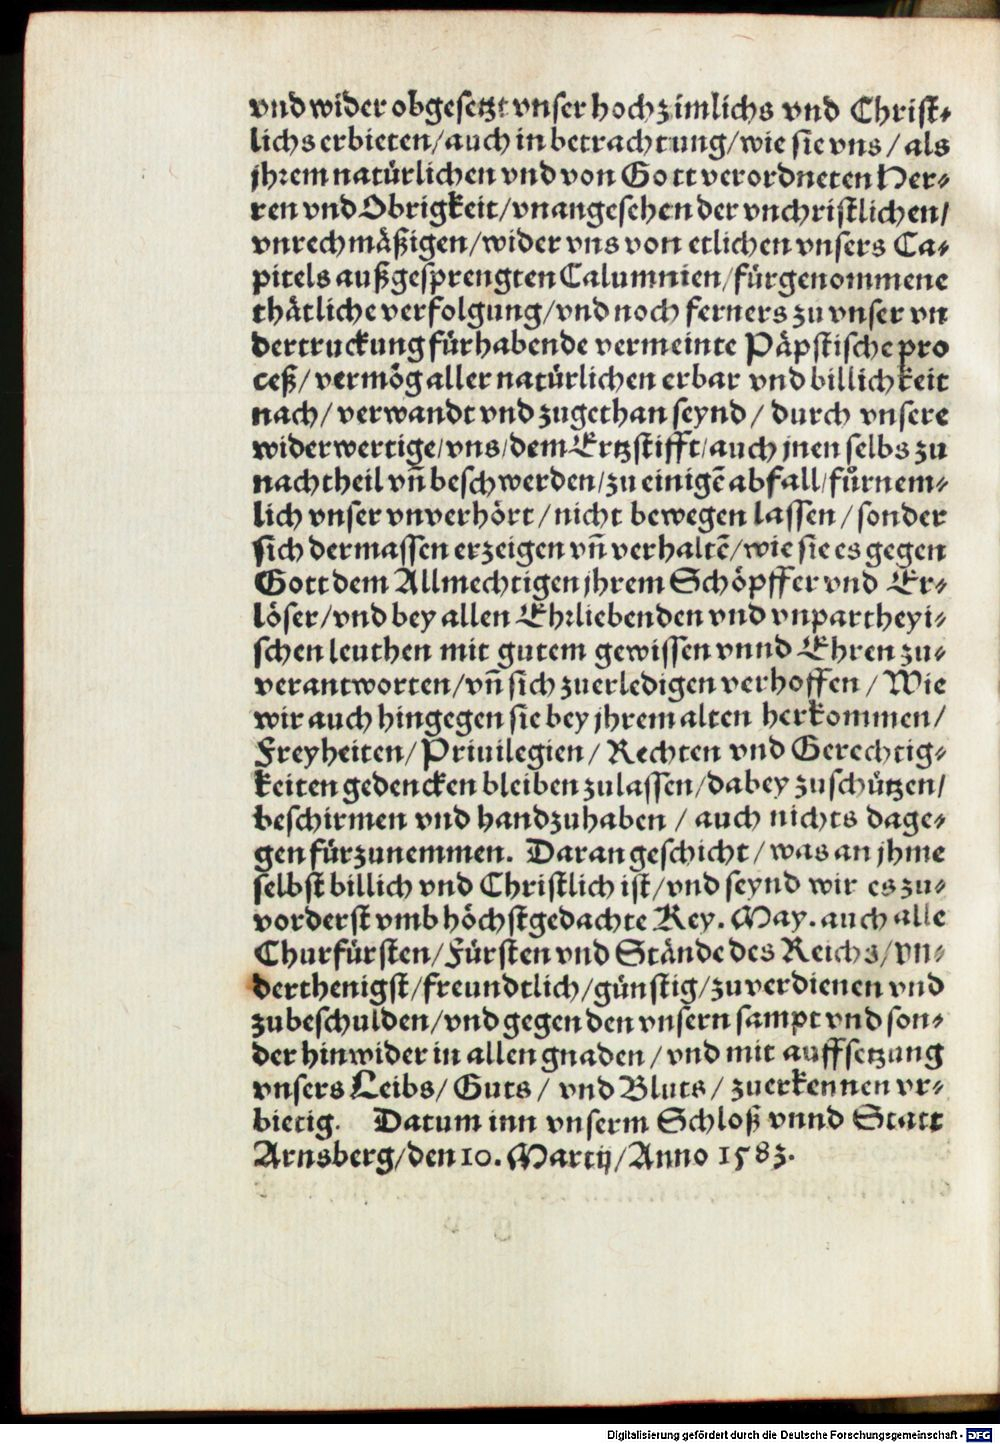 vnd wider obgesetzt vnser hochzimlichs vnd Christ⸗
lichs erbieten/ auch in betrachtung/ wie sie vns/ als
jhrem natürlichen vnd von Gott verordneten Her⸗
ren vnd Obrigkeit/ vnangesehen der vnchristlichen/
vnrechmäßigen/ wider vns von etlichen vnsers Ca⸗
pitels außgesprengten Calumnien/ fürgenommene
thätliche verfolgung/ vnd noch ferners zu vnser vn
dertruckung fürhabende vermeinte Päpstische pro
ceß/ vermög aller natürlichen erbar vnd billichkeit
nach/ verwandt vnd zugethan seynd/ durch vnsere
widerwertige/ vns/ dem Ertzstifft/ auch jnen selbs zu
nachtheil vñ beschwerden/ zu einigẽ abfall/ fůrnem⸗
lich vnser vnverhört/ nicht bewegen lassen/ sonder
sich dermassen erzeigen vñ verhaltẽ/ wie sie es gegen
Gott dem Allmechtigen jhrem Schöpffer vnd Er⸗
löser/ vnd bey allen Ehrliebenden vnd vnpartheyi⸗
schen leuthen mit gutem gewissen vnnd Ehren zu⸗
verantworten/ vñ sich zuerledigen verhoffen/ Wie
wir auch hingegen sie bey jhrem alten herkommen/
Freyheiten/ Priuilegien/ Rechten vnd Gerechtig⸗
keiten gedencken bleiben zulassen/ dabey zuschützen/
beschirmen vnd handzuhaben/ auch nichts dage⸗
gen fürzunemmen. Daran geschicht/ was an jhme
selbst billich vnd Christlich ist/ vnd seynd wir es zu⸗
vorderst vmb höchstgedachte Key. May. auch alle
Churfürsten/ Fürsten vnd Stände des Reichs/ vn⸗
derthenigst/ freundtlich/ günstig/ zuverdienen vnd
zubeschulden/ vnd gegen den vnsern sampt vnd son⸗
der hinwider in allen gnaden/ vnd mit auffsetzung
vnsers Leibs/ Guts/ vnd Bluts/ zuerkennen vr⸗
bietig. Datum inn vnserm Schloß vnnd Statt
Arnsberg/ den 10. Martij/ Anno 1583.
Digitalisierung gefördert durch die Deutsche Forschungsgemeinschaft - DFG